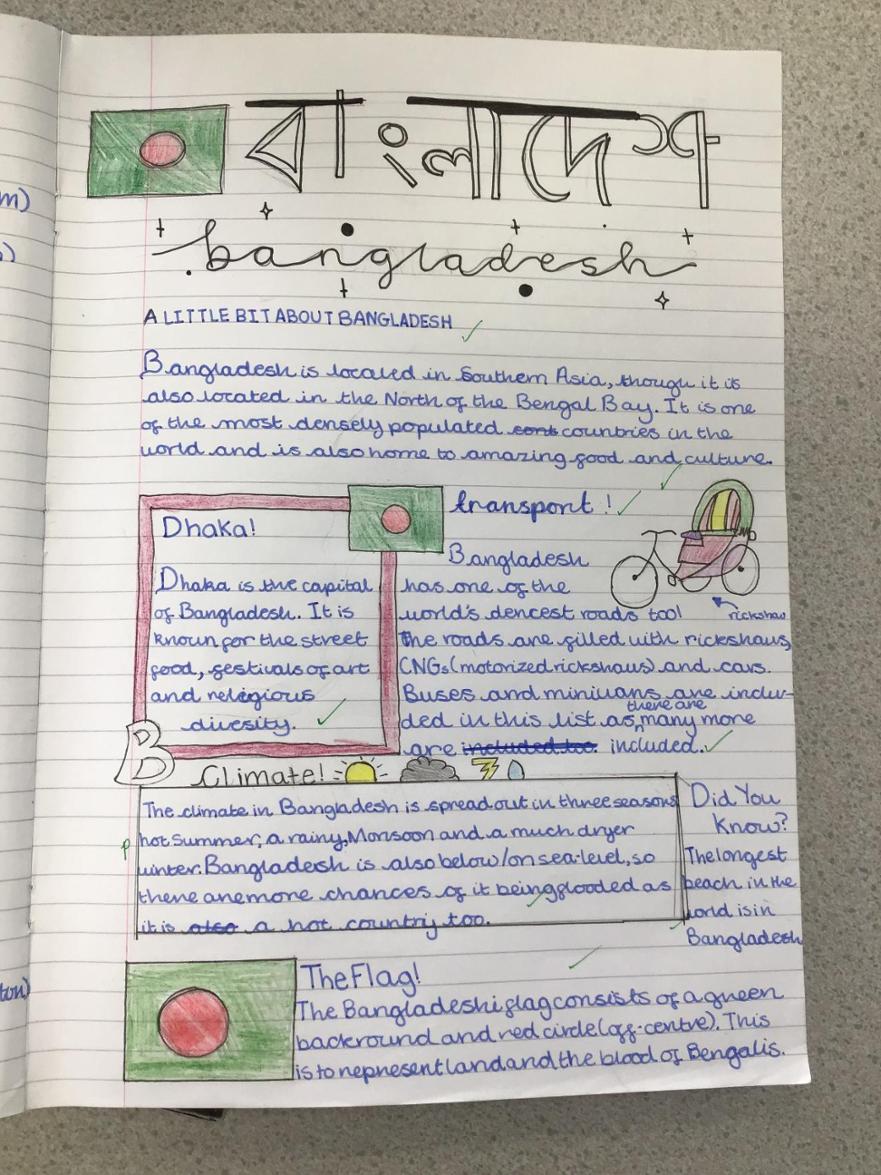 m)
বাংলাদেশ
bangladesh
A LITTLE BIT ABOUT BANGLADESH
Bangladesh is located in Southern Asia, though it is
also located in the North of the Bengal Bay. It is one
of the most densely populated cont countries in the
world and is also home to amazing food and culture.
Dhaka!
Dhaka is the capital
of Bangladesh. It is
known for the street
food, festivals of art
and religious
divesity.
transport!
Bangladesh
has one of the
world's dencest roads too!
rickshaw
The roads are filled with rickshaws,
CNGs (motorized rickshaws) and cars.
Buses and minivans are inclu-
ded in this list as there are many more
are included too. included.
B
Climate!
The climate in Bangladesh is spread out in three seasons
hot Summer, a rainy, Monsoon and a much dryer
p
winter. Bangladesh is also below/on sea-level, so
there are more chances of it being flooded as
it is also a hot country too.
Did You
Know?
The longest
beach in the
world is in
Bangladesh
The Flag!
The Bangladeshi flag consists of a green
backround and red circle (off-centre). This
is to represent land and the blood of Bengalis.